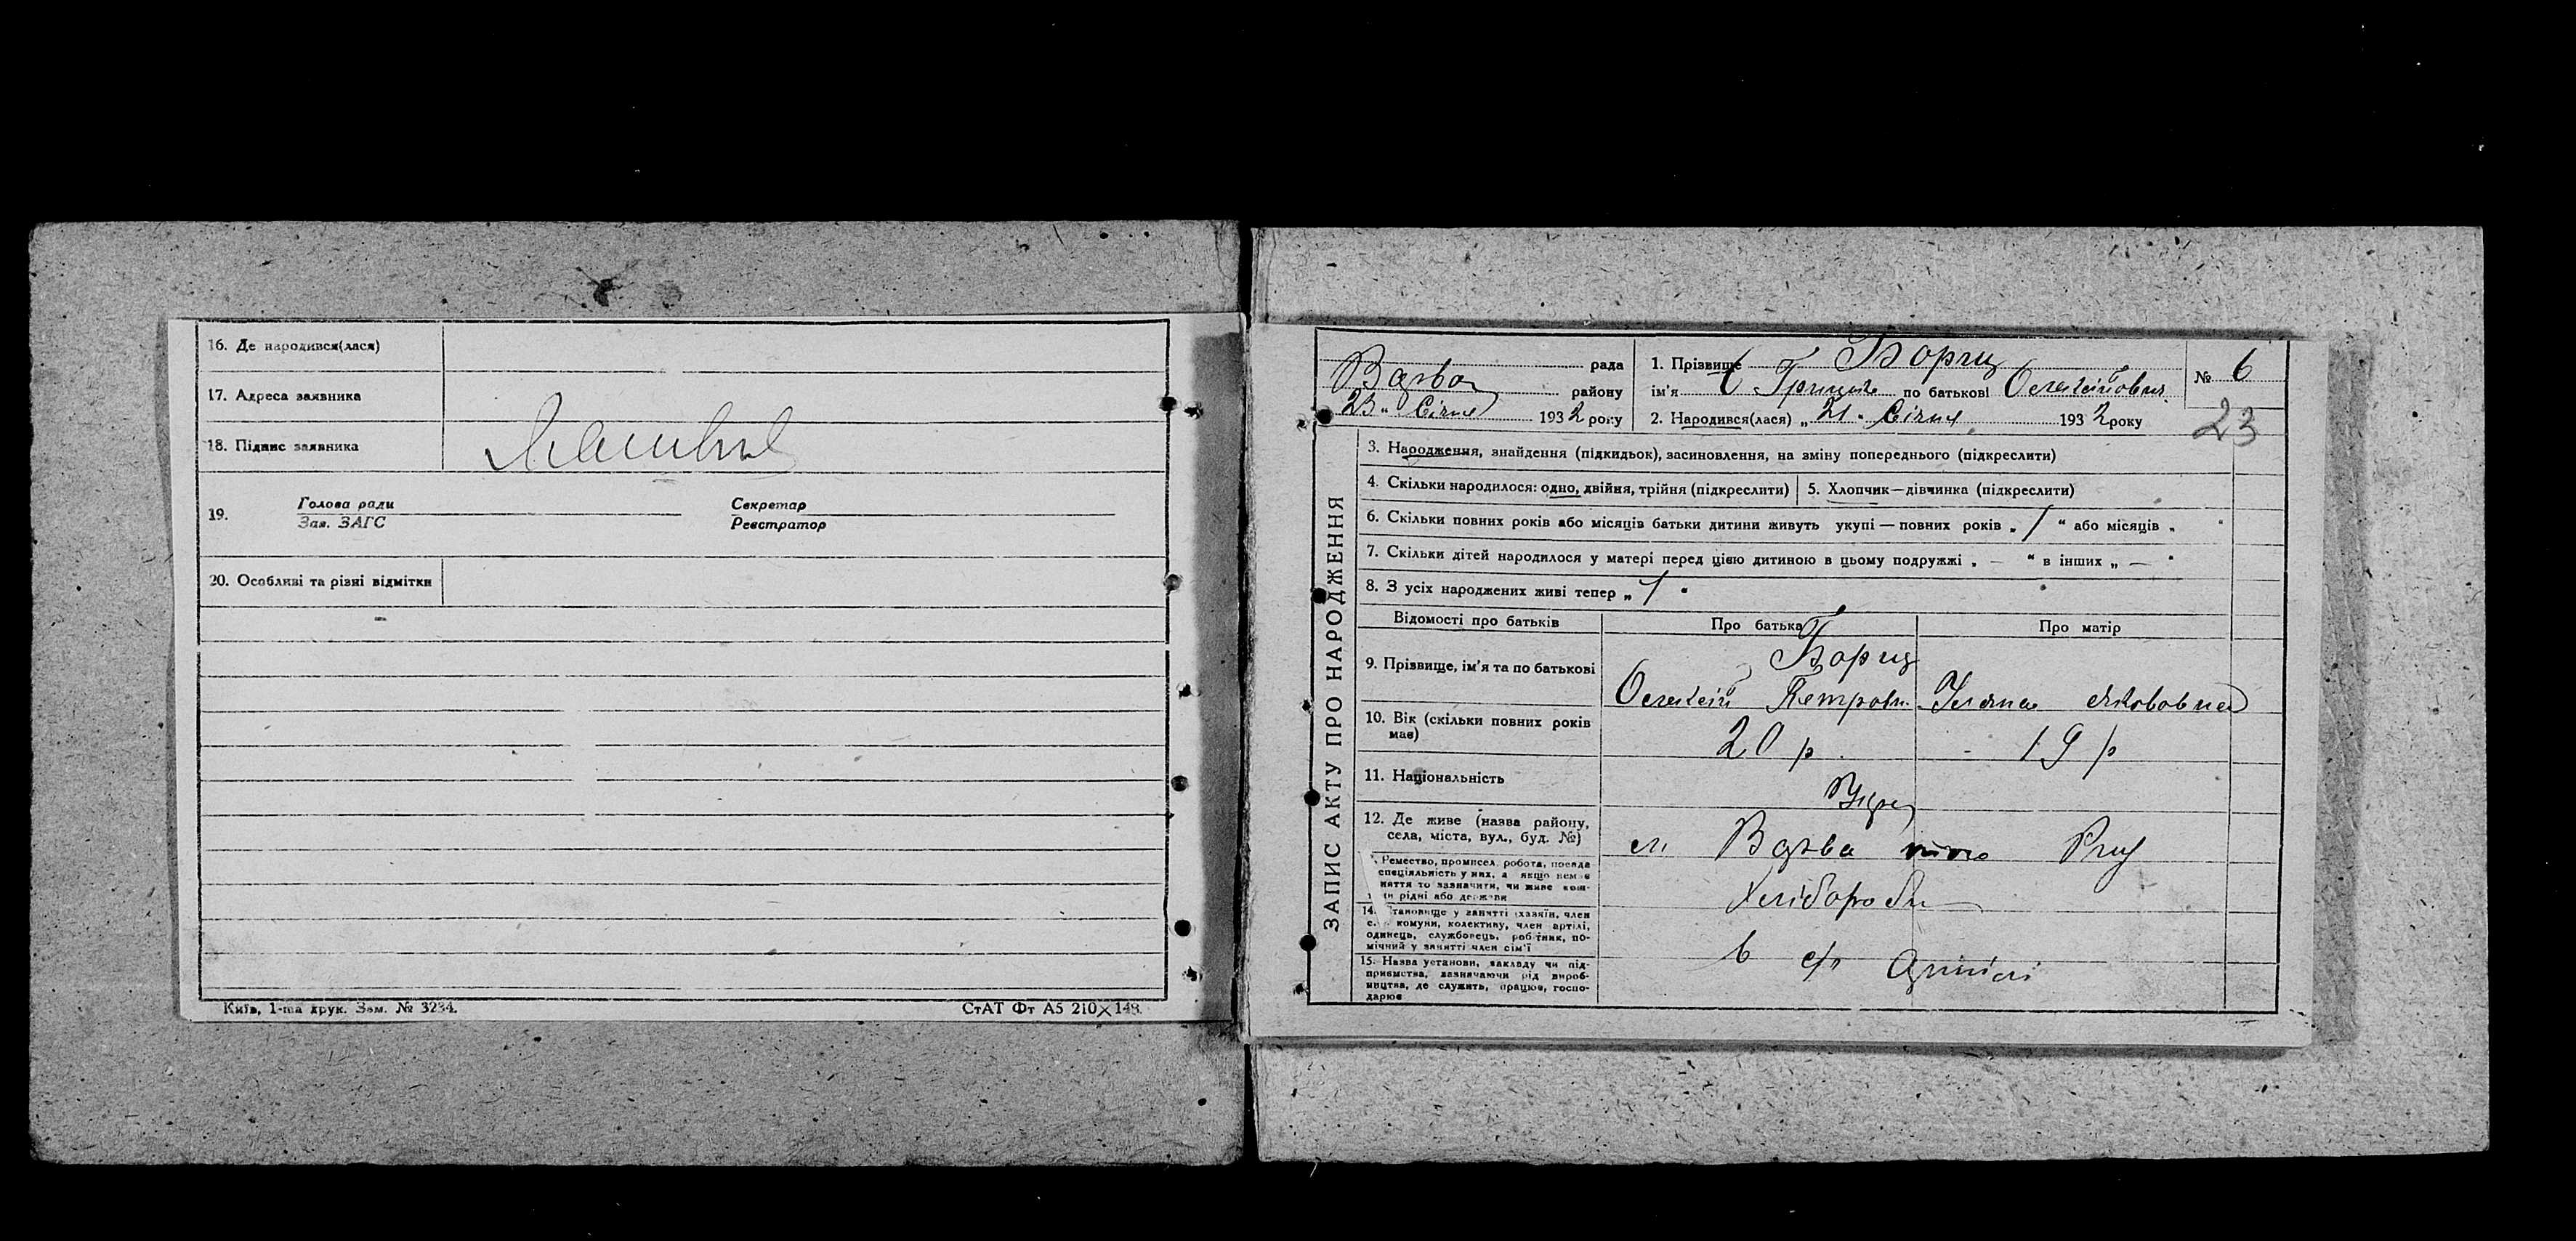 16. Де народився(лася)
17. Адреса заявника
18. Підпис заявника
19. Голова ради Секретар
Зав. ЗАГС Реєстратор
20. Особливі та різні відмітки
Київ, 1-ша друк. Зам. № 3234.
СтАТ Фт А5 210×148.
ЗАПИС АКТУ ПРО НАРОДЖЕННЯ
рада
Варва району
23 " Січня 1932 року
1. Прізвище Борщ
ім'я Гриць по батькові Олексійович
2. Народився(лася) „ 21 " Січня 1932 року
№ 6
23
3. Народження, знайдення (підкидьок), засиновлення, на зміну попереднього (підкреслити)
4. Скільки народилося: одно, двійня, трійня (підкреслити)
5. Хлопчик—дівчинка (підкреслити)
6. Скільки повних років або місяців батьки дитини живуть укупі — повних років „ 1 “ або місяців „ “
7. Скільки дітей народилося у матері перед цією дитиною в цьому подружжі „ — “ в інших „ — “
8. З усіх народжених живі тепер „ 1 "
Відомості про батьків Про батька Про матір
9. Прізвище, ім'я та по батькові Борщ
Олексій Петров. Уляна Якововна
10. Вік (скільки повних років має) 20 р. 19 р
11. Національність Укр
12. Де живе (назва району, села, міста, вул., буд. №) м. Варва
Ремество, промисел, робота, посада
спеціяльність у них, а якщо нема
няття то зазначити, чи живе кош-
рідні або держави
Хлібороби
14. Становище у занятті хазяїн, член
комуни, колективу, член артілі,
одинець, службовець, робітник, по-
мічний у занятті член сім'ї
15. Назва установи, закладу чи під-
приємства, зазначаючи рід вироб-
ництва, де служить, працює, госпо-
дарює
в с/г артілі